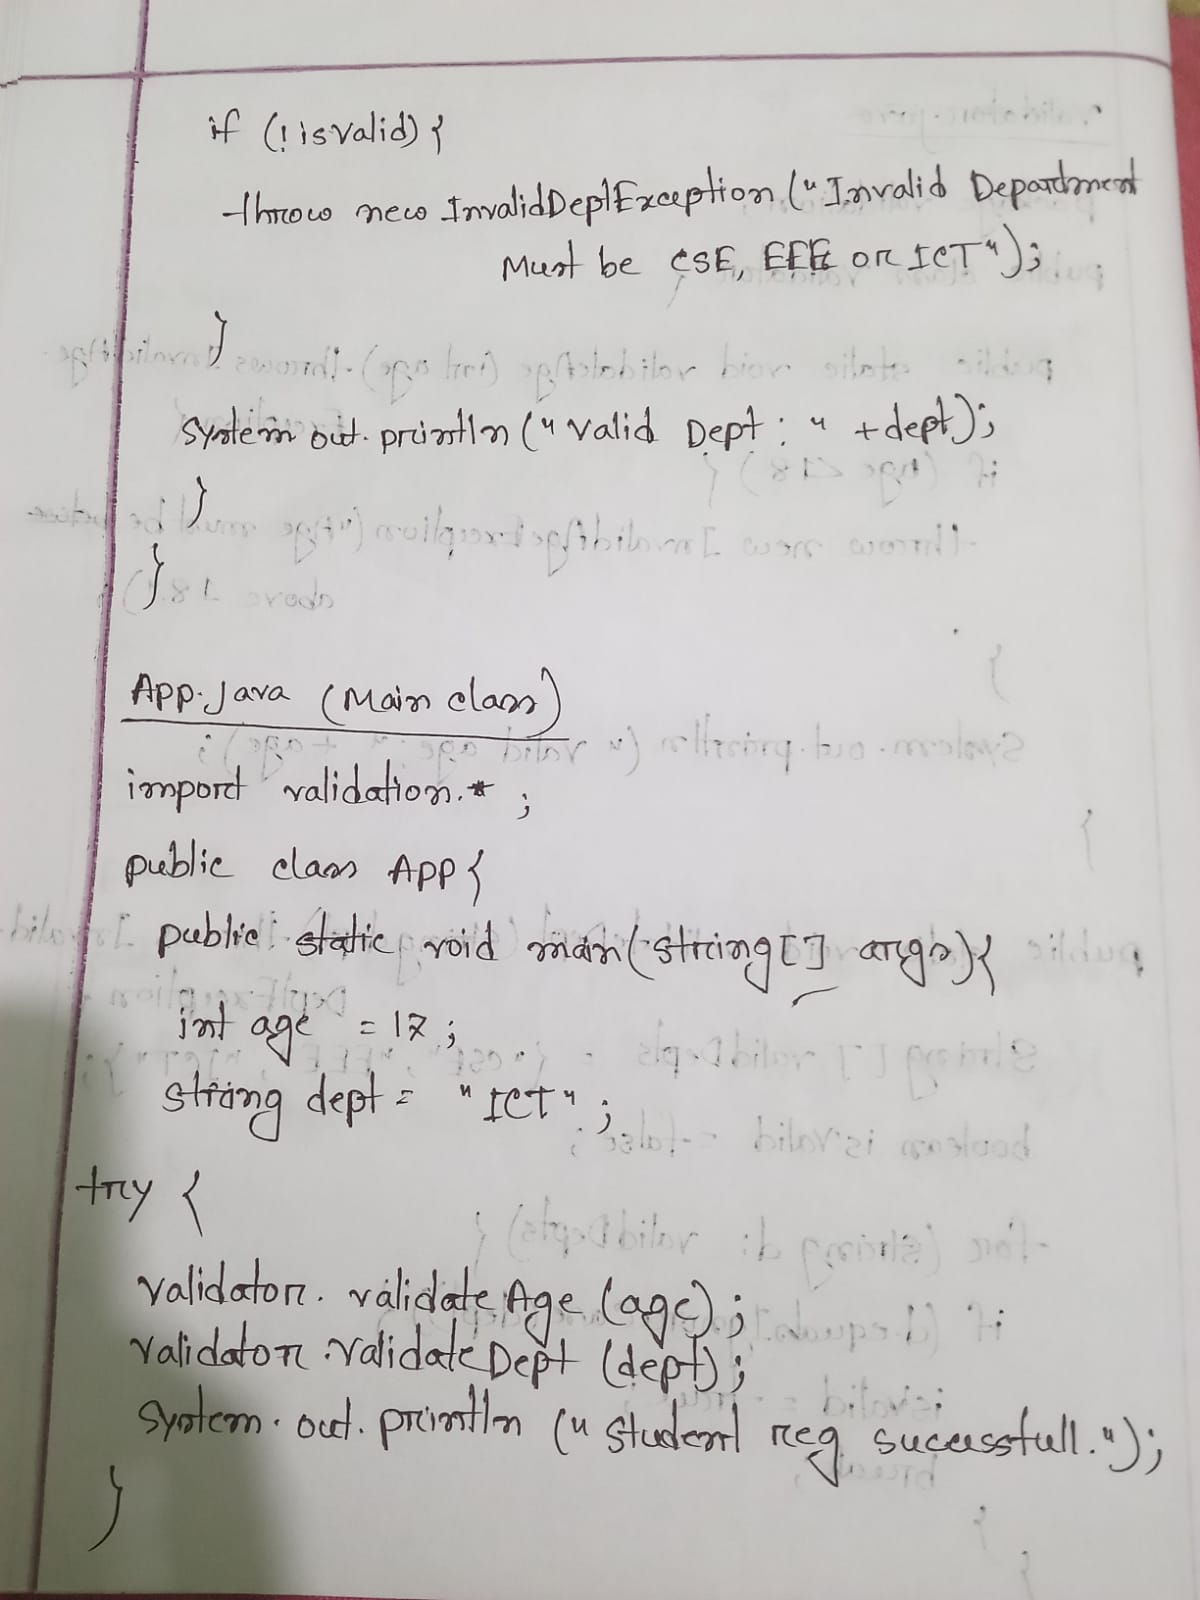 if (!isvalid) {
throw new InvalidDeptException ("Invalid Department
Must be CSE, EEE or ICT");
}
system out. println ("valid Dept : " +dept);
}
}
App.java (Main class)
import validation.* ;
public class App {
public static void main(string[] args){
int age = 17 ;
string dept = "ICT" ;
try {
validator. validateAge (age);
validator.validateDept (dept);
system. out. println ("student reg sucessfull.");
}